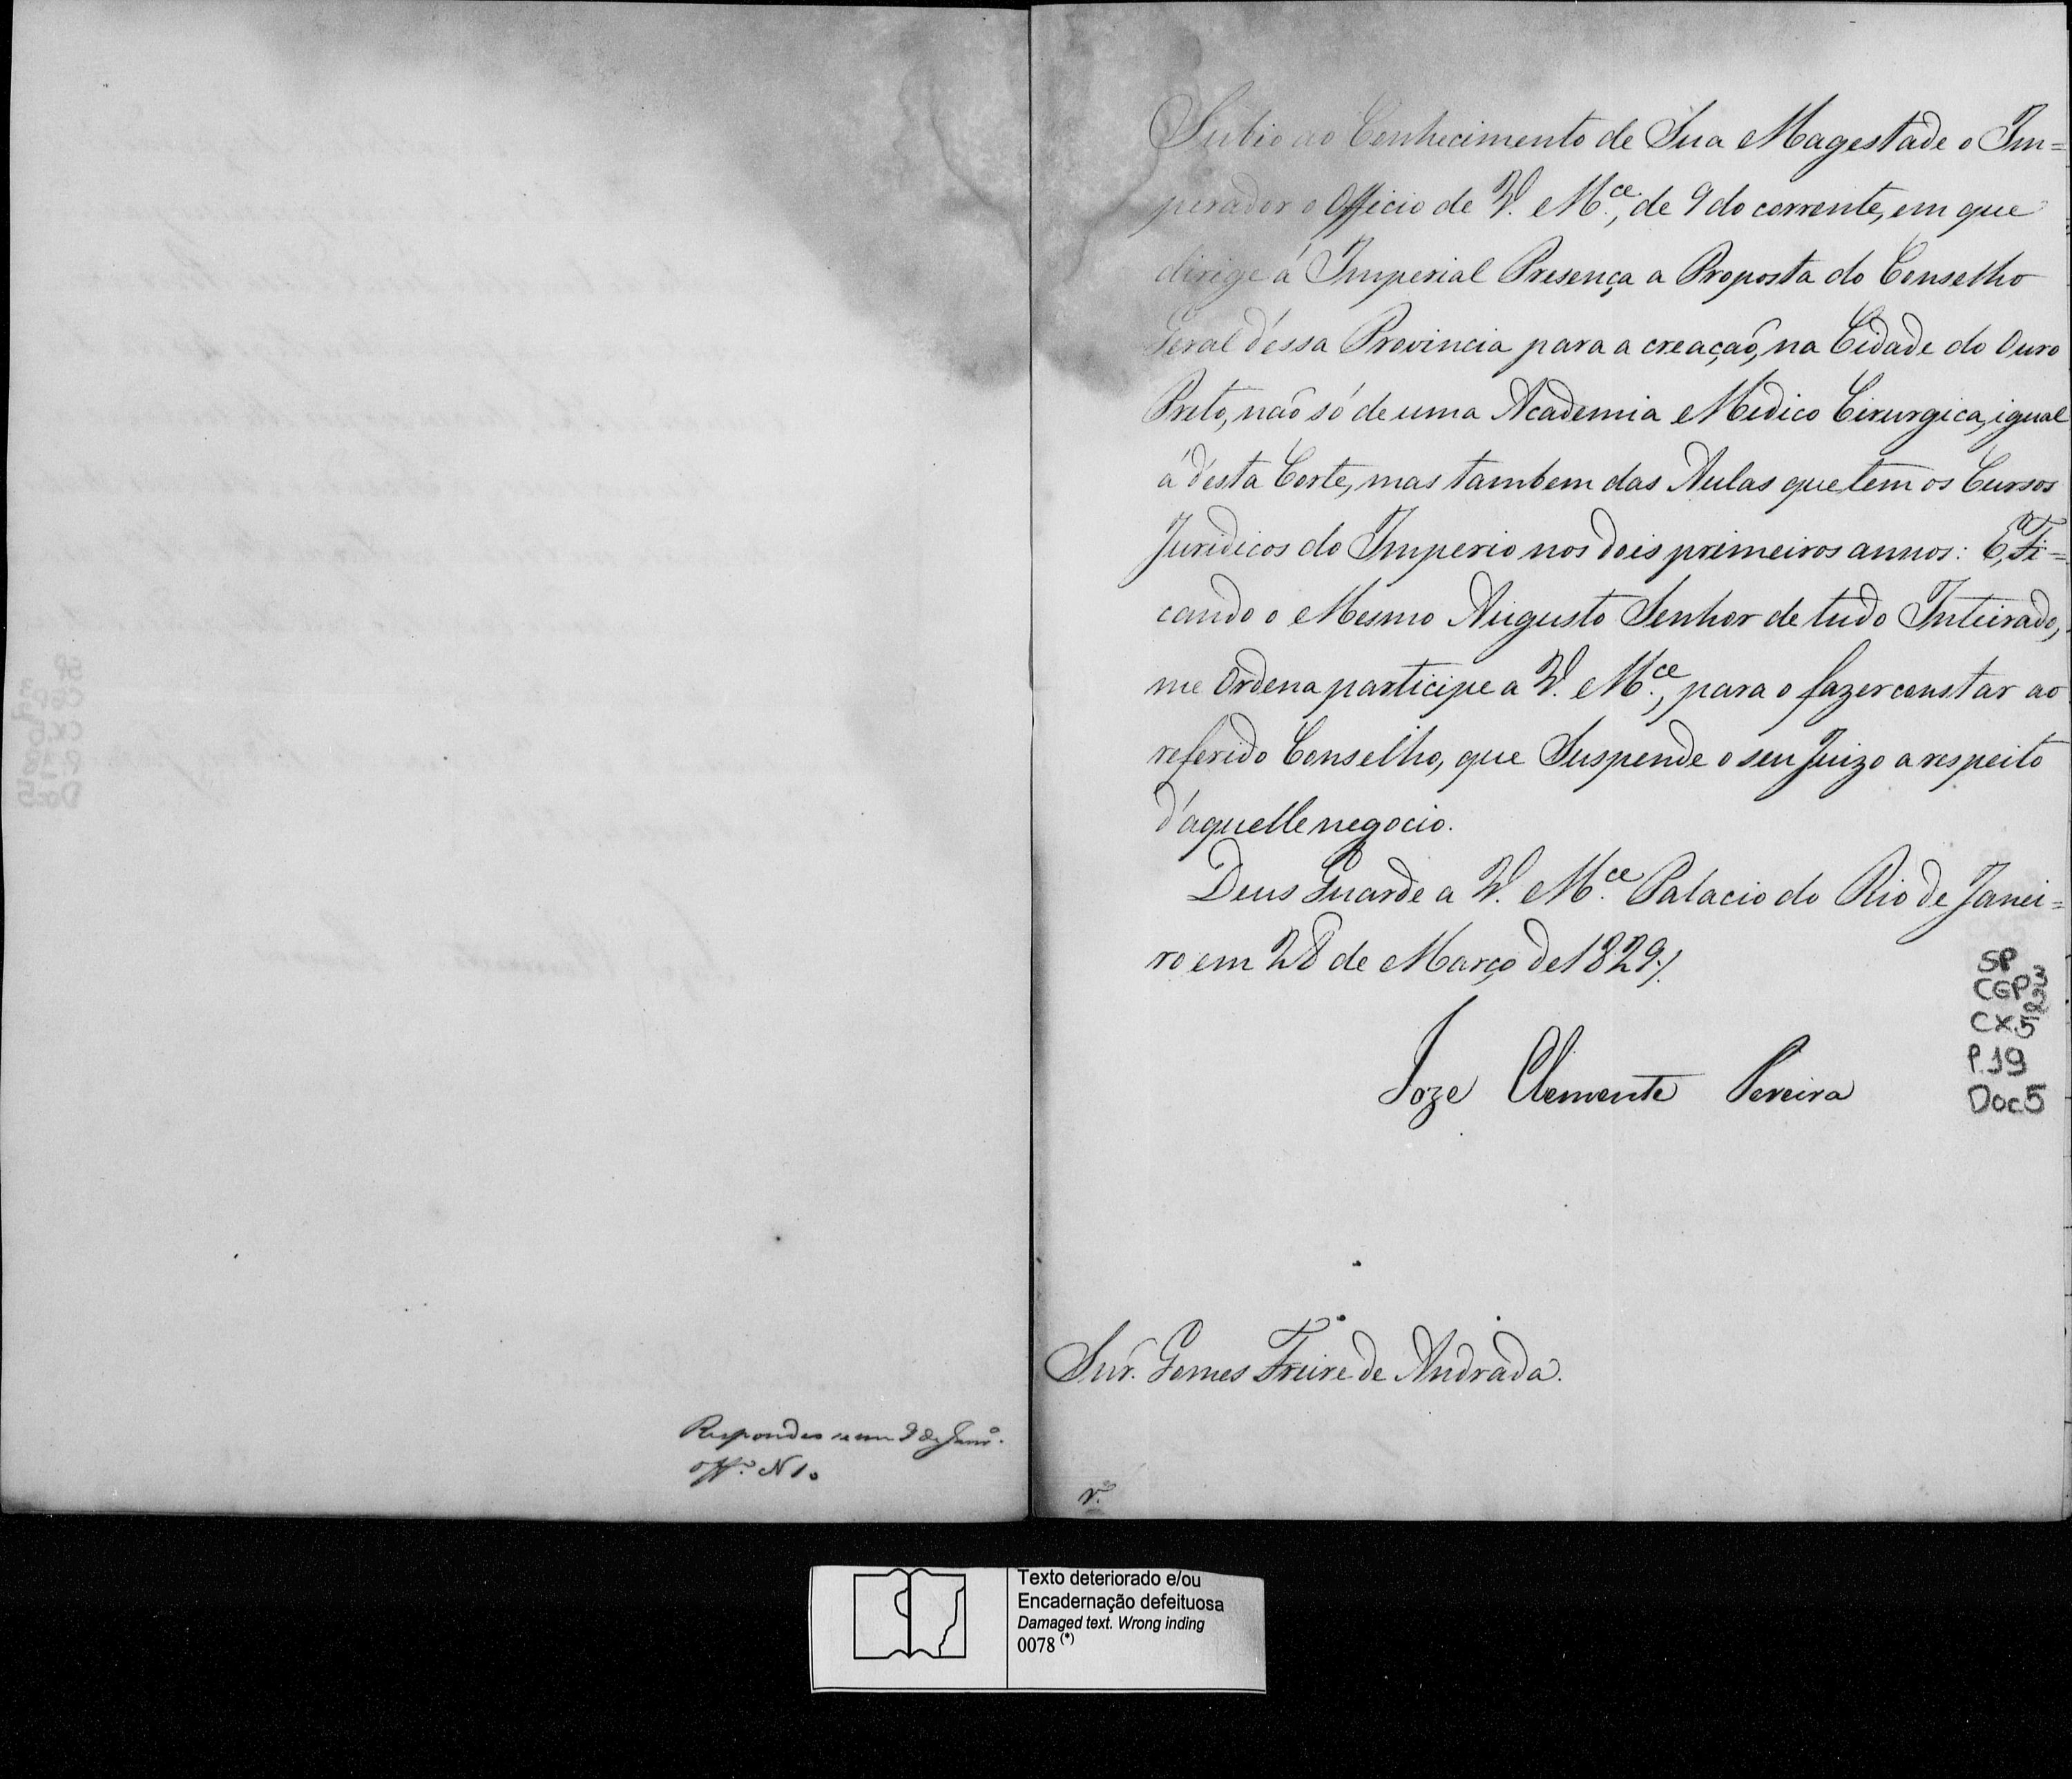 Respondeo se em 9 de Janrº.
offº. N 1º
Subio ao Conhecimento de Sua Magestade o Im=
perador o Officio de V. M.ce, de 9 do corrente, em que
dirige á Imperial Presença a Proposta do Conselho
Geral d'essa Provincia para a creaçaõ, na Cidade do Ouro
Preto, naõ só de uma Academia Medico Cirurgica, igual
á d'esta Corte, mas tambem das Aulas que tem os Cursos
Juridicos do Imperio nos dois primeiros annos: E, Fi=
cando o Mesmo Augusto Senhor de tudo Inteirado,
me Ordena participe a V. M.ce, para o fazer constar ao
referido Conselho, que Suspende o seu Juizo a respeito
d'aquelle negocio.
Deus Guarde a V. M.ce Palacio do Rio de Janei=
ro em 28 de Março de 1829./.
Joze Clemente Pereira
SP
CGP3
CX.52
P.19
Doc5
Snr. Gomes Freire de Andrada.
Texto deteriorado e/ou
Encadernação defeituosa
Damaged text. Wrong inding
0078 (*)